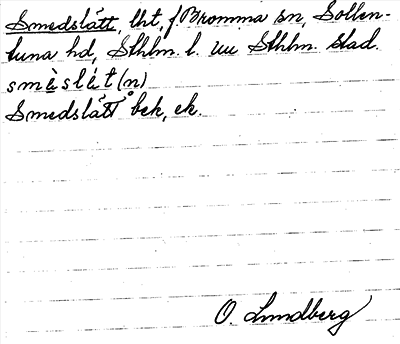 Smedslätt, lht, f Bromma sn, Sollen-
tuna hd, Sthlm. l. nu Sthlm. stad.
smèslát(n)
Smedslått bek, ek.
O. Lundberg